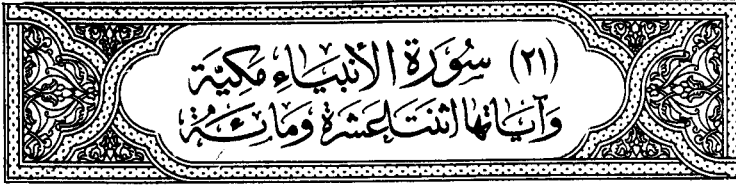 (٢١) سُورَة الأنبيَاءِ مَكيَّة
وَآيَاتها اثنتَا عَشرَة وَمَائَة